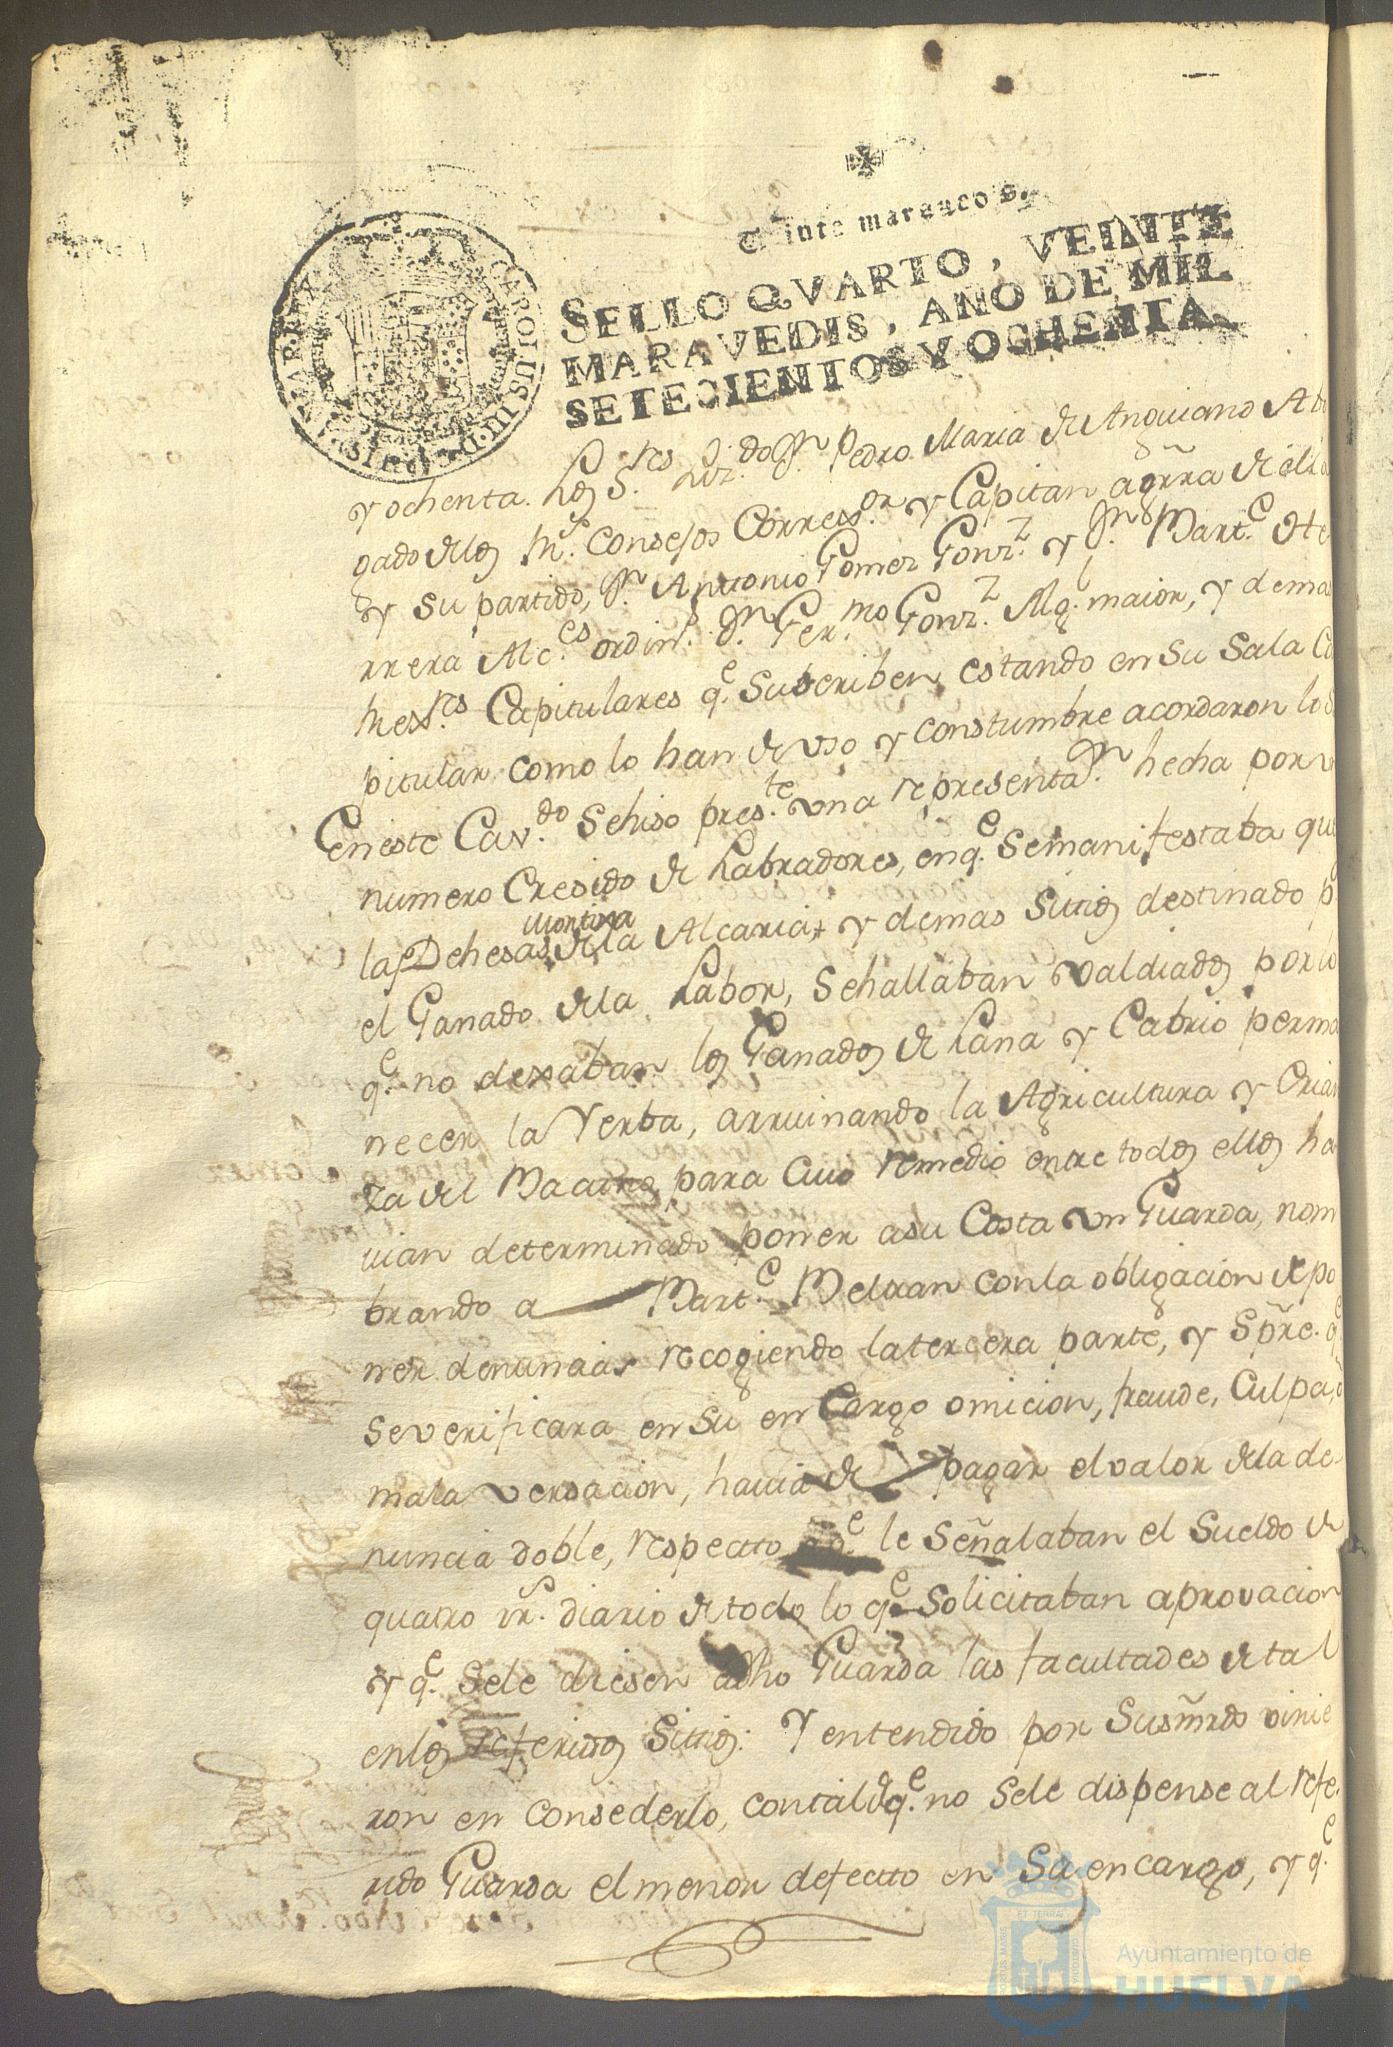 CAROLUS III D G
Veinte maravedis.
SELLO QVARTO, VEINTE
MARAVEDIS, AÑO DE MIL
SETECIENTOS Y OCHENTA.
y ochenta. Los S.res Liz.do Dn Pedro Maria de Anguiano Abo
gado de los Rs. Consejos Corregor. y Capitan a grra de ella
y su partido, Dn Antonio Gomez Gonz. y Dn Mart.e He
rrera Alc.es ordins. Dn Ger.mo Gonz. Alg. maior, y demas
s.res Capitulares q.e Subscriben, estando en su Sala Ca
pitular como lo han de uso y constumbre acordaron lo s
En este Cav.do Sehiso pres.te una representan. hecha por u
numero Cresido de Labradores, enq.e Semanifestaba que
montina
las Dehesas de la Alcaria, y demas Sitios destinado p
el Ganado dela Labor, Sehallaban valdiados por lo
q.e no dexaban los Ganados de Lana y Cabrio perma
necer la Yerba, arruinando la Agricultura y Crian
za del Bacuno, para Cuio remedio entre todos ellos ha
vian determinado poner asu Costa un Guarda, nom
brando a Mart.e Beltran conla obligacion de po
ner denuncias recogiendo latercera parte, y Spre. q.e
severificara en su en Cargo omicion, fraude, Culpa, o
mala versacion, havia de pagar elvalor dela de
nuncia doble, respecto aq.e le Señalaban el Sueldo de
quatro rs. diario de todo lo q.e Solicitaban aprovacion
y q.e Sele diesen adho Guarda las facultades de tal
enlos referidos Sitios: Y entendido por Susmrds vinie
ron en consederlo, contal q.e no Sele dispense al refe
rido Guarda elmenor defecto en Su encargo, y q.e
Ayuntamiento de
HUELVA